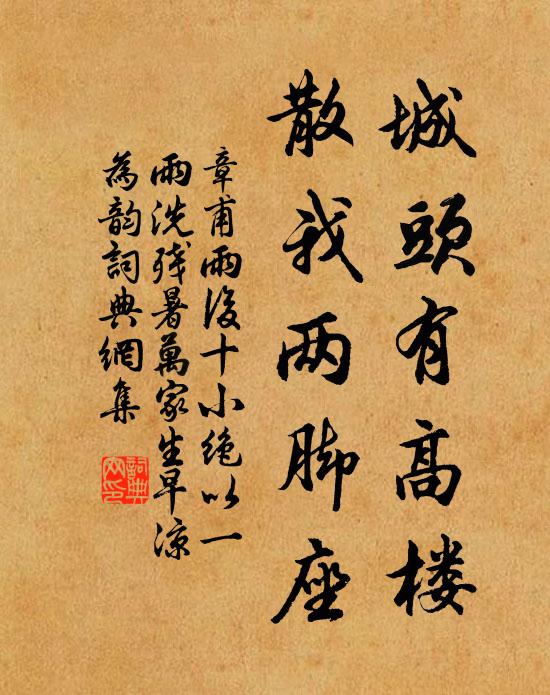 城頭有高楼
散我两脚座
章甫雨後十小绝以一
雨洗残暑萬家生早凉
為韵詞典網集
詞典网印